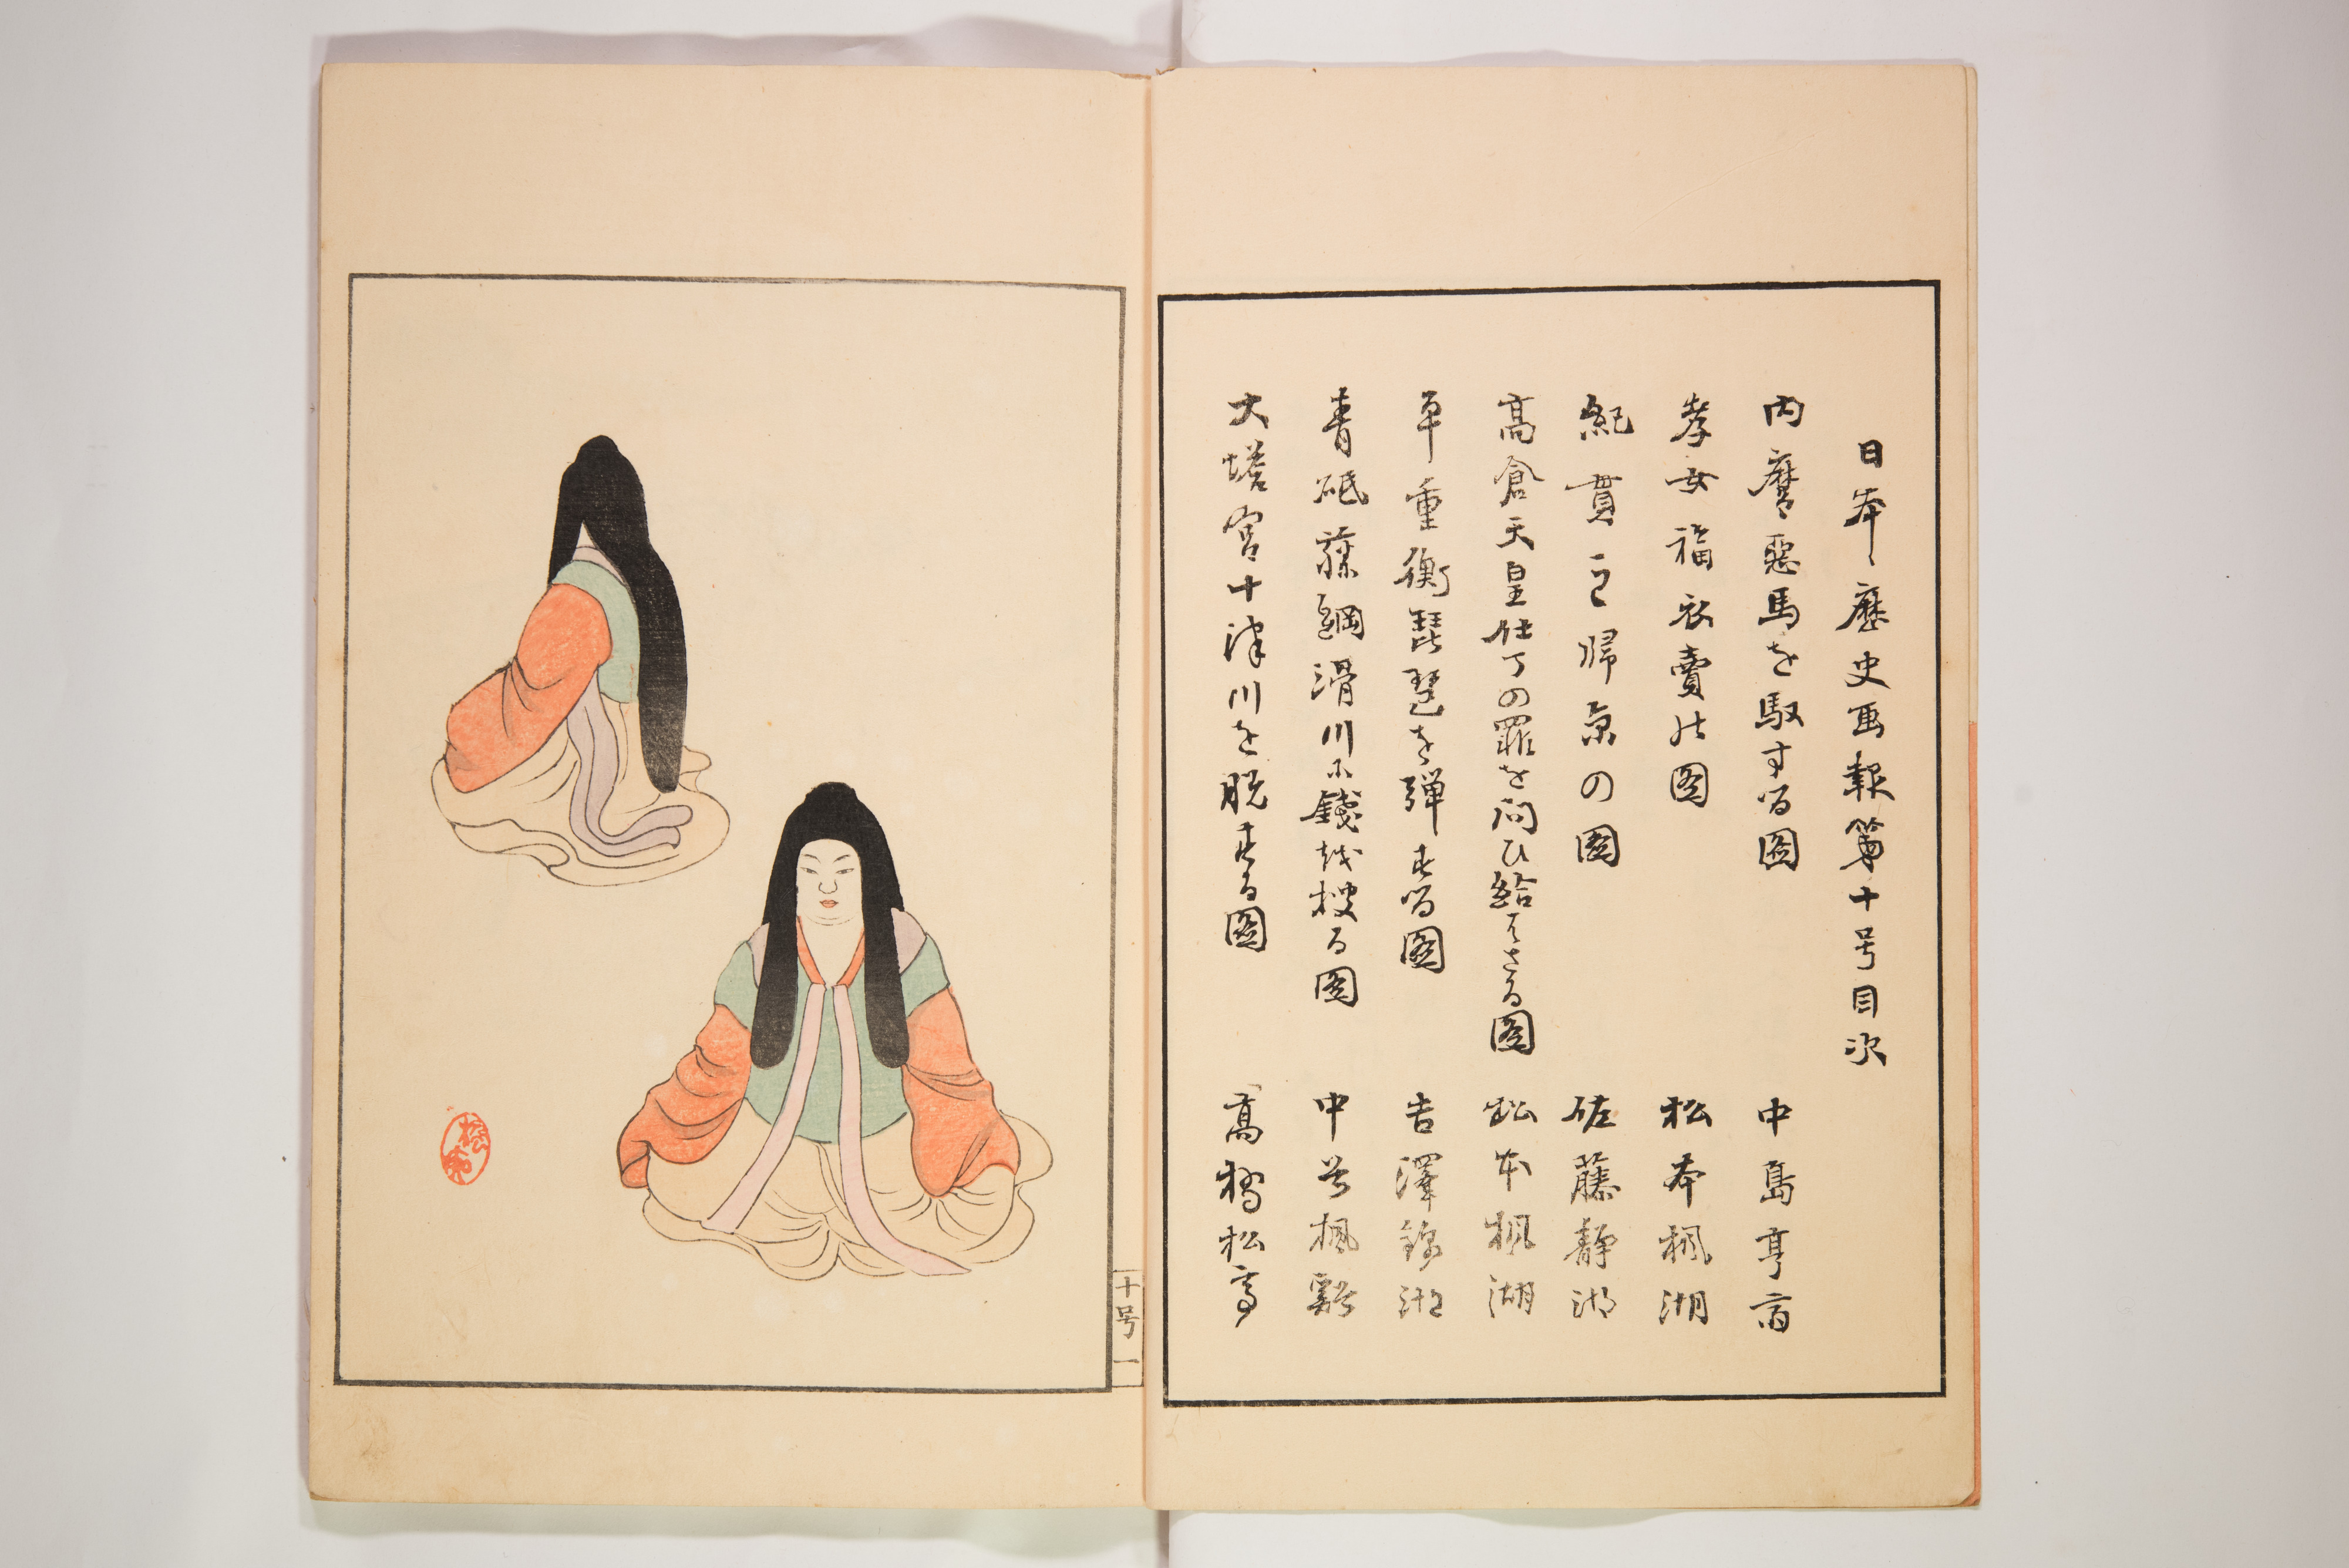 日本歴史画報第十号目次
内麿惡馬を馭する圖 中島亨齋
孝女福衣賣の圖 松本楓湖
紀貫之歸京の圖 佐藤靜湖
高倉天皇仕丁の罪を問ひ給はざる圖 松本楓湖
平重衡琵琶を弾ずる圖 吉澤錦湖
青砥藤綱滑川に錢を捜る圖 中谷楓谿
大塔宮十津川を脱する圖 高橋松亭
十号 一